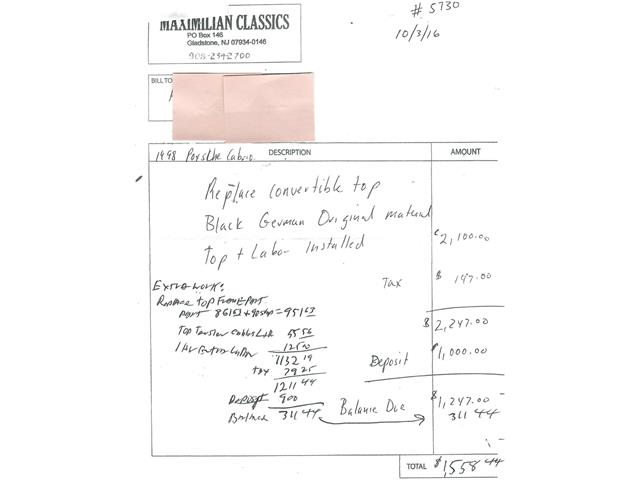 # 5730
MAXIMILIAN CLASSICS
PO Box 146
Gladstone, NJ 07934-0146
908-234-2700
10/3/16
BILL TO
1998 Porsche Cabrio
DESCRIPTION
AMOUNT
Replace convertible top
Black German Original material
Top + Labor Installed
$2,100.00
Tax
$ 147.00
Extra work:
$ 2,247.00
Top Tension Cables L+R 55 56
1 Hr Labor 125 00
1132 19
Deposit
$1,000.00
Tax 79 25
1211 44
Deposit 900
$1,247.00
Balance 311 44
Balance Due
311 44
TOTAL $1,558 44